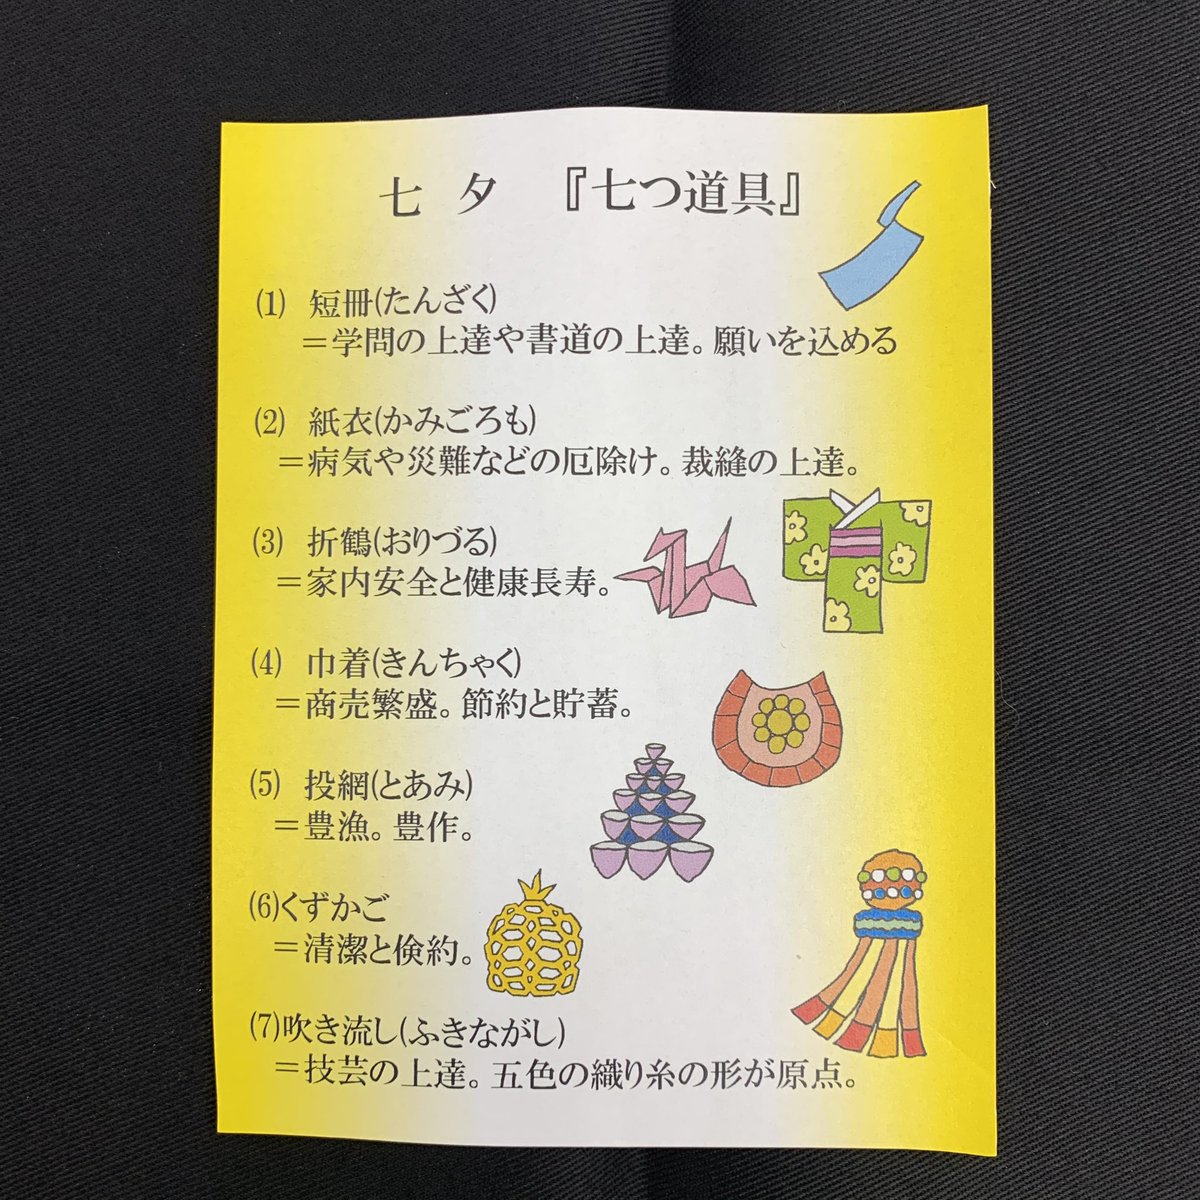 七夕 『七つ道具』
(1) 短冊(たんざく)
＝学問の上達や書道の上達。願いを込める
(2) 紙衣(かみごろも)
＝病気や災難などの厄除け。裁縫の上達。
(3) 折鶴(おりづる)
＝家内安全と健康長寿。
(4) 巾着(きんちゃく)
＝商売繁盛。節約と貯蓄。
(5) 投網(とあみ)
＝豊漁。豊作。
(6)くずかご
＝清潔と倹約。
(7)吹き流し(ふきながし)
＝技芸の上達。五色の織り糸の形が原点。